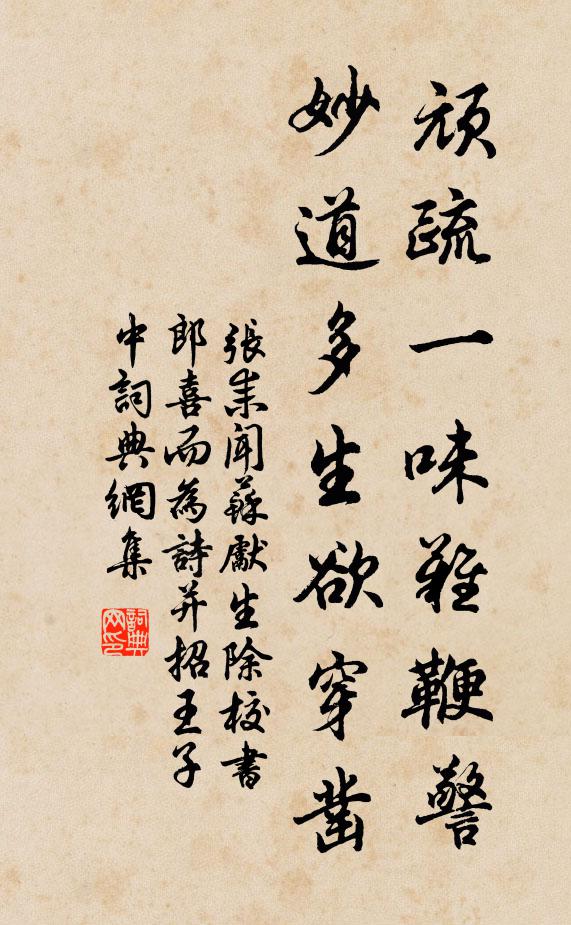 頑疏一味難鞭警
妙道多生欲穿鑿
張耒聞蘇獻生除校書
郎喜而為詩并招王子
中詞典網集
詞典
网印